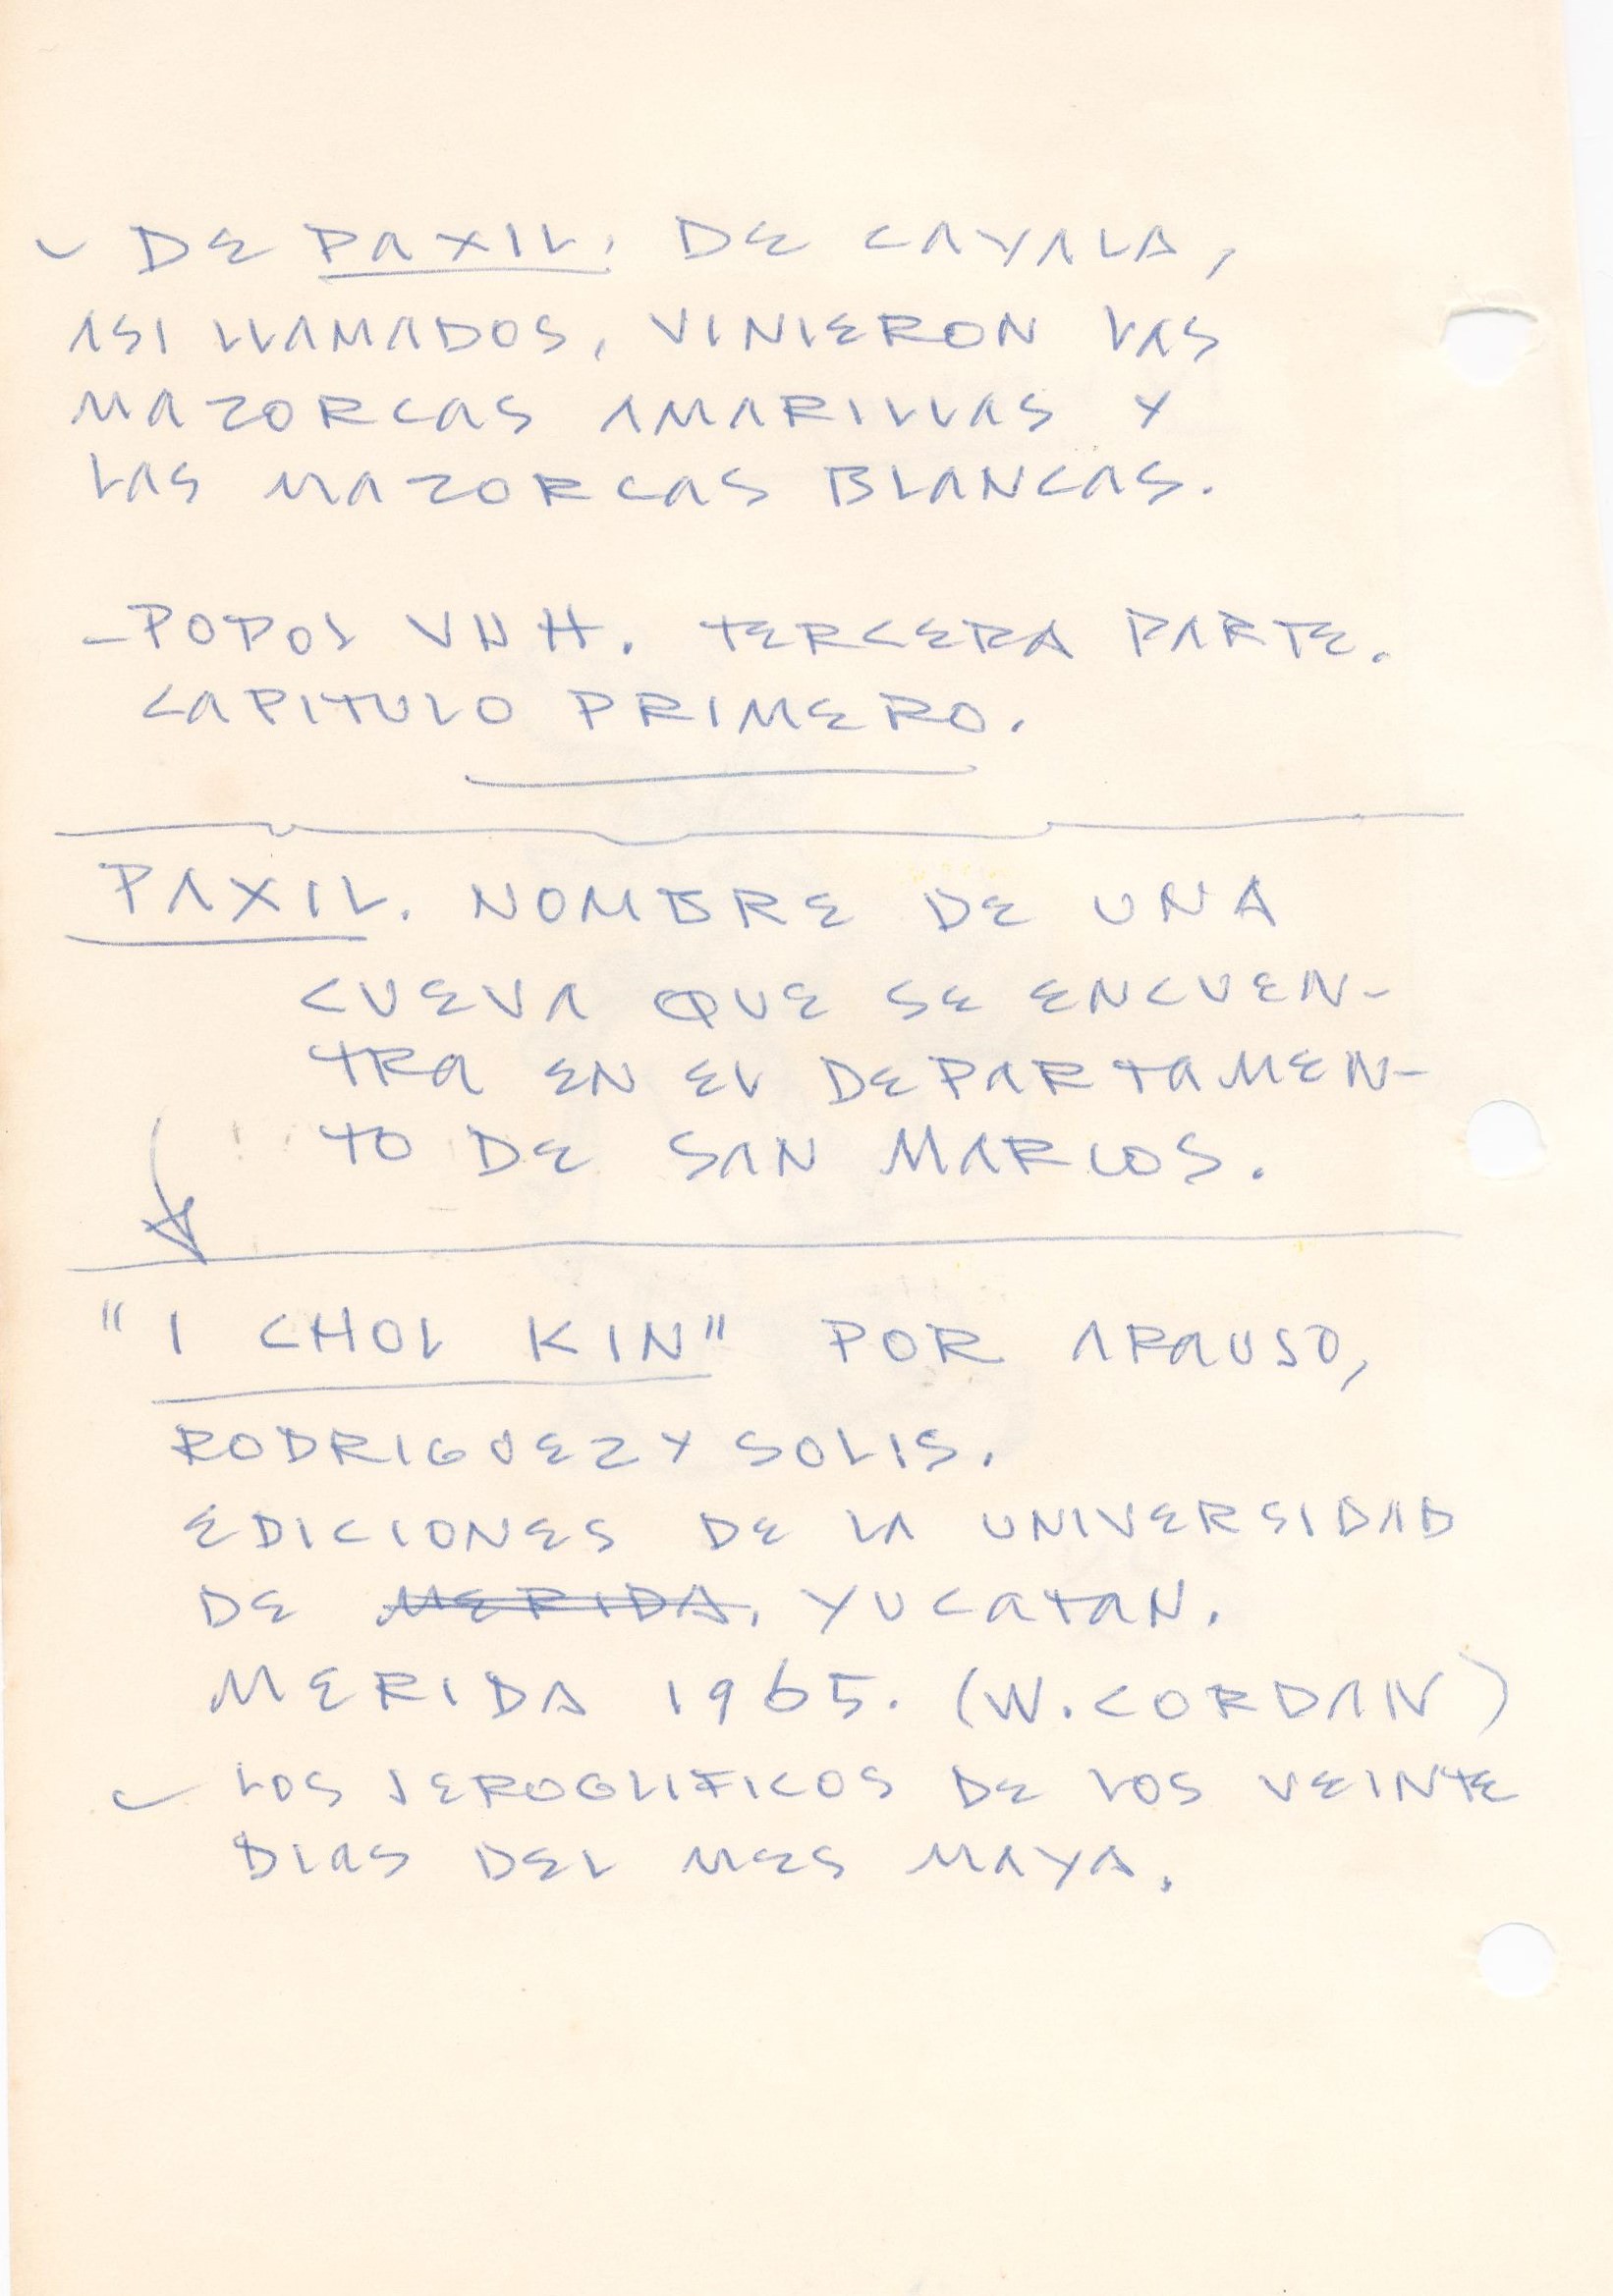 DE PAXIL. DE CAYALA,
ASI LLAMADOS, VINIERON LAS
MAZORCAS AMARILLAS Y
LAS MAZORCAS BLANCAS.
-POPOL VUH. TERCERA PARTE.
CAPITULO PRIMERO.
PAXIL. NOMBRE DE UNA
CUEVA QUE SE ENCUEN-
TRA EN EL DEPARTAMEN-
TO DE SAN MARCOS.
"I CHOL KIN" POR ARAUSO,
RODRIGUEZ Y SOLIS.
EDICIONES DE LA UNIVERSIDAD
DE MERIDA. YUCATAN.
MERIDA 1965. (W. CORDAN)
LOS JEROGLIFICOS DE LOS VEINTE
DIAS DEL MES MAYA.